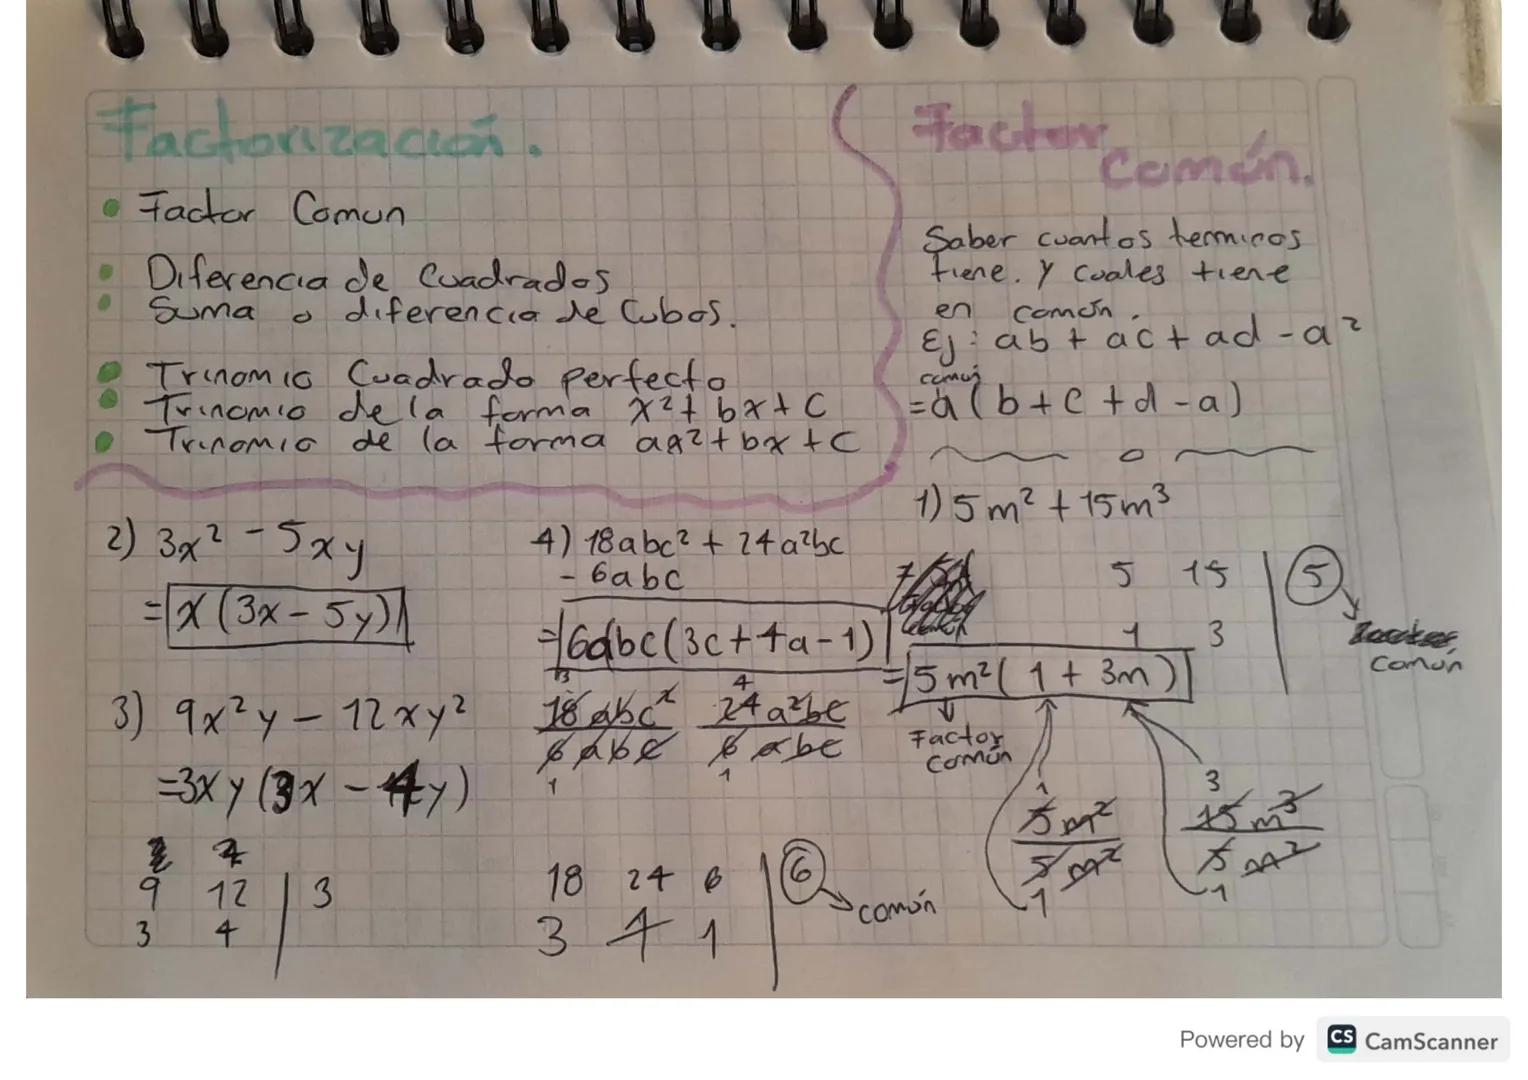 Factorización.
• Factor Comun
• Diferencia de Cuadrados
• Suma o diferencia de Cubos.
• Trinomio Cuadrado perfecto
• Trinomio de la forma x² + bx + C
• Trinomio de la forma ax² + bx + C
Factor
Común.
Saber cuantos terminos
tiene. y cuales tiene
en común.
Ej: ab + ac + ad - a²
común
= a (b + c + d - a)
1) 5m² + 15m³
5 15 | 5
1 3
común
= 5m² (1 + 3m)
Factor
común
1
5m²
5m²
1
3
15m³
5m²
1
2) 3x² - 5xy
= x (3x - 5y)
3) 9x²y - 12xy²
= 3xy (3x - 4y)
9 12 | 3
3 4
4) 18abc² + 24a²bc
- 6abc
= 6abc (3c + 4a - 1)
3
18abc²
6abc
1
4
24a²bc
6abc
1
18 24 6 | 6
común
3 4 1
Powered by CS CamScanner